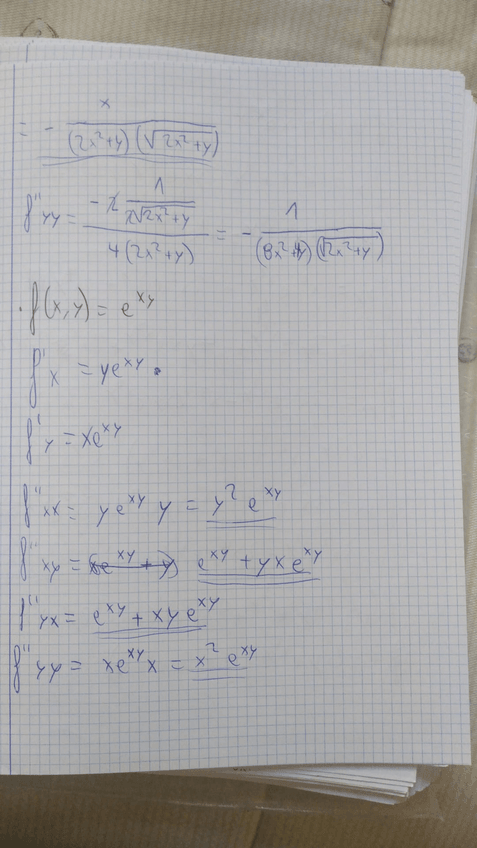 = - x / (2x²+y)(√2x²+y)
f''yy = -2 1/2√2x²+y / 4(2x²+y) = - 1 / (8x²+4y)(√2x²+y)
· f(x,y) = e^xy
f'x = ye^xy
f'y = xe^xy
f''xx = ye^xy y = y² e^xy
f''xy = (xe^xy + y) e^xy + yx e^xy
f''yx = e^xy + xy e^xy
f''yy = xe^xy x = x² e^xy